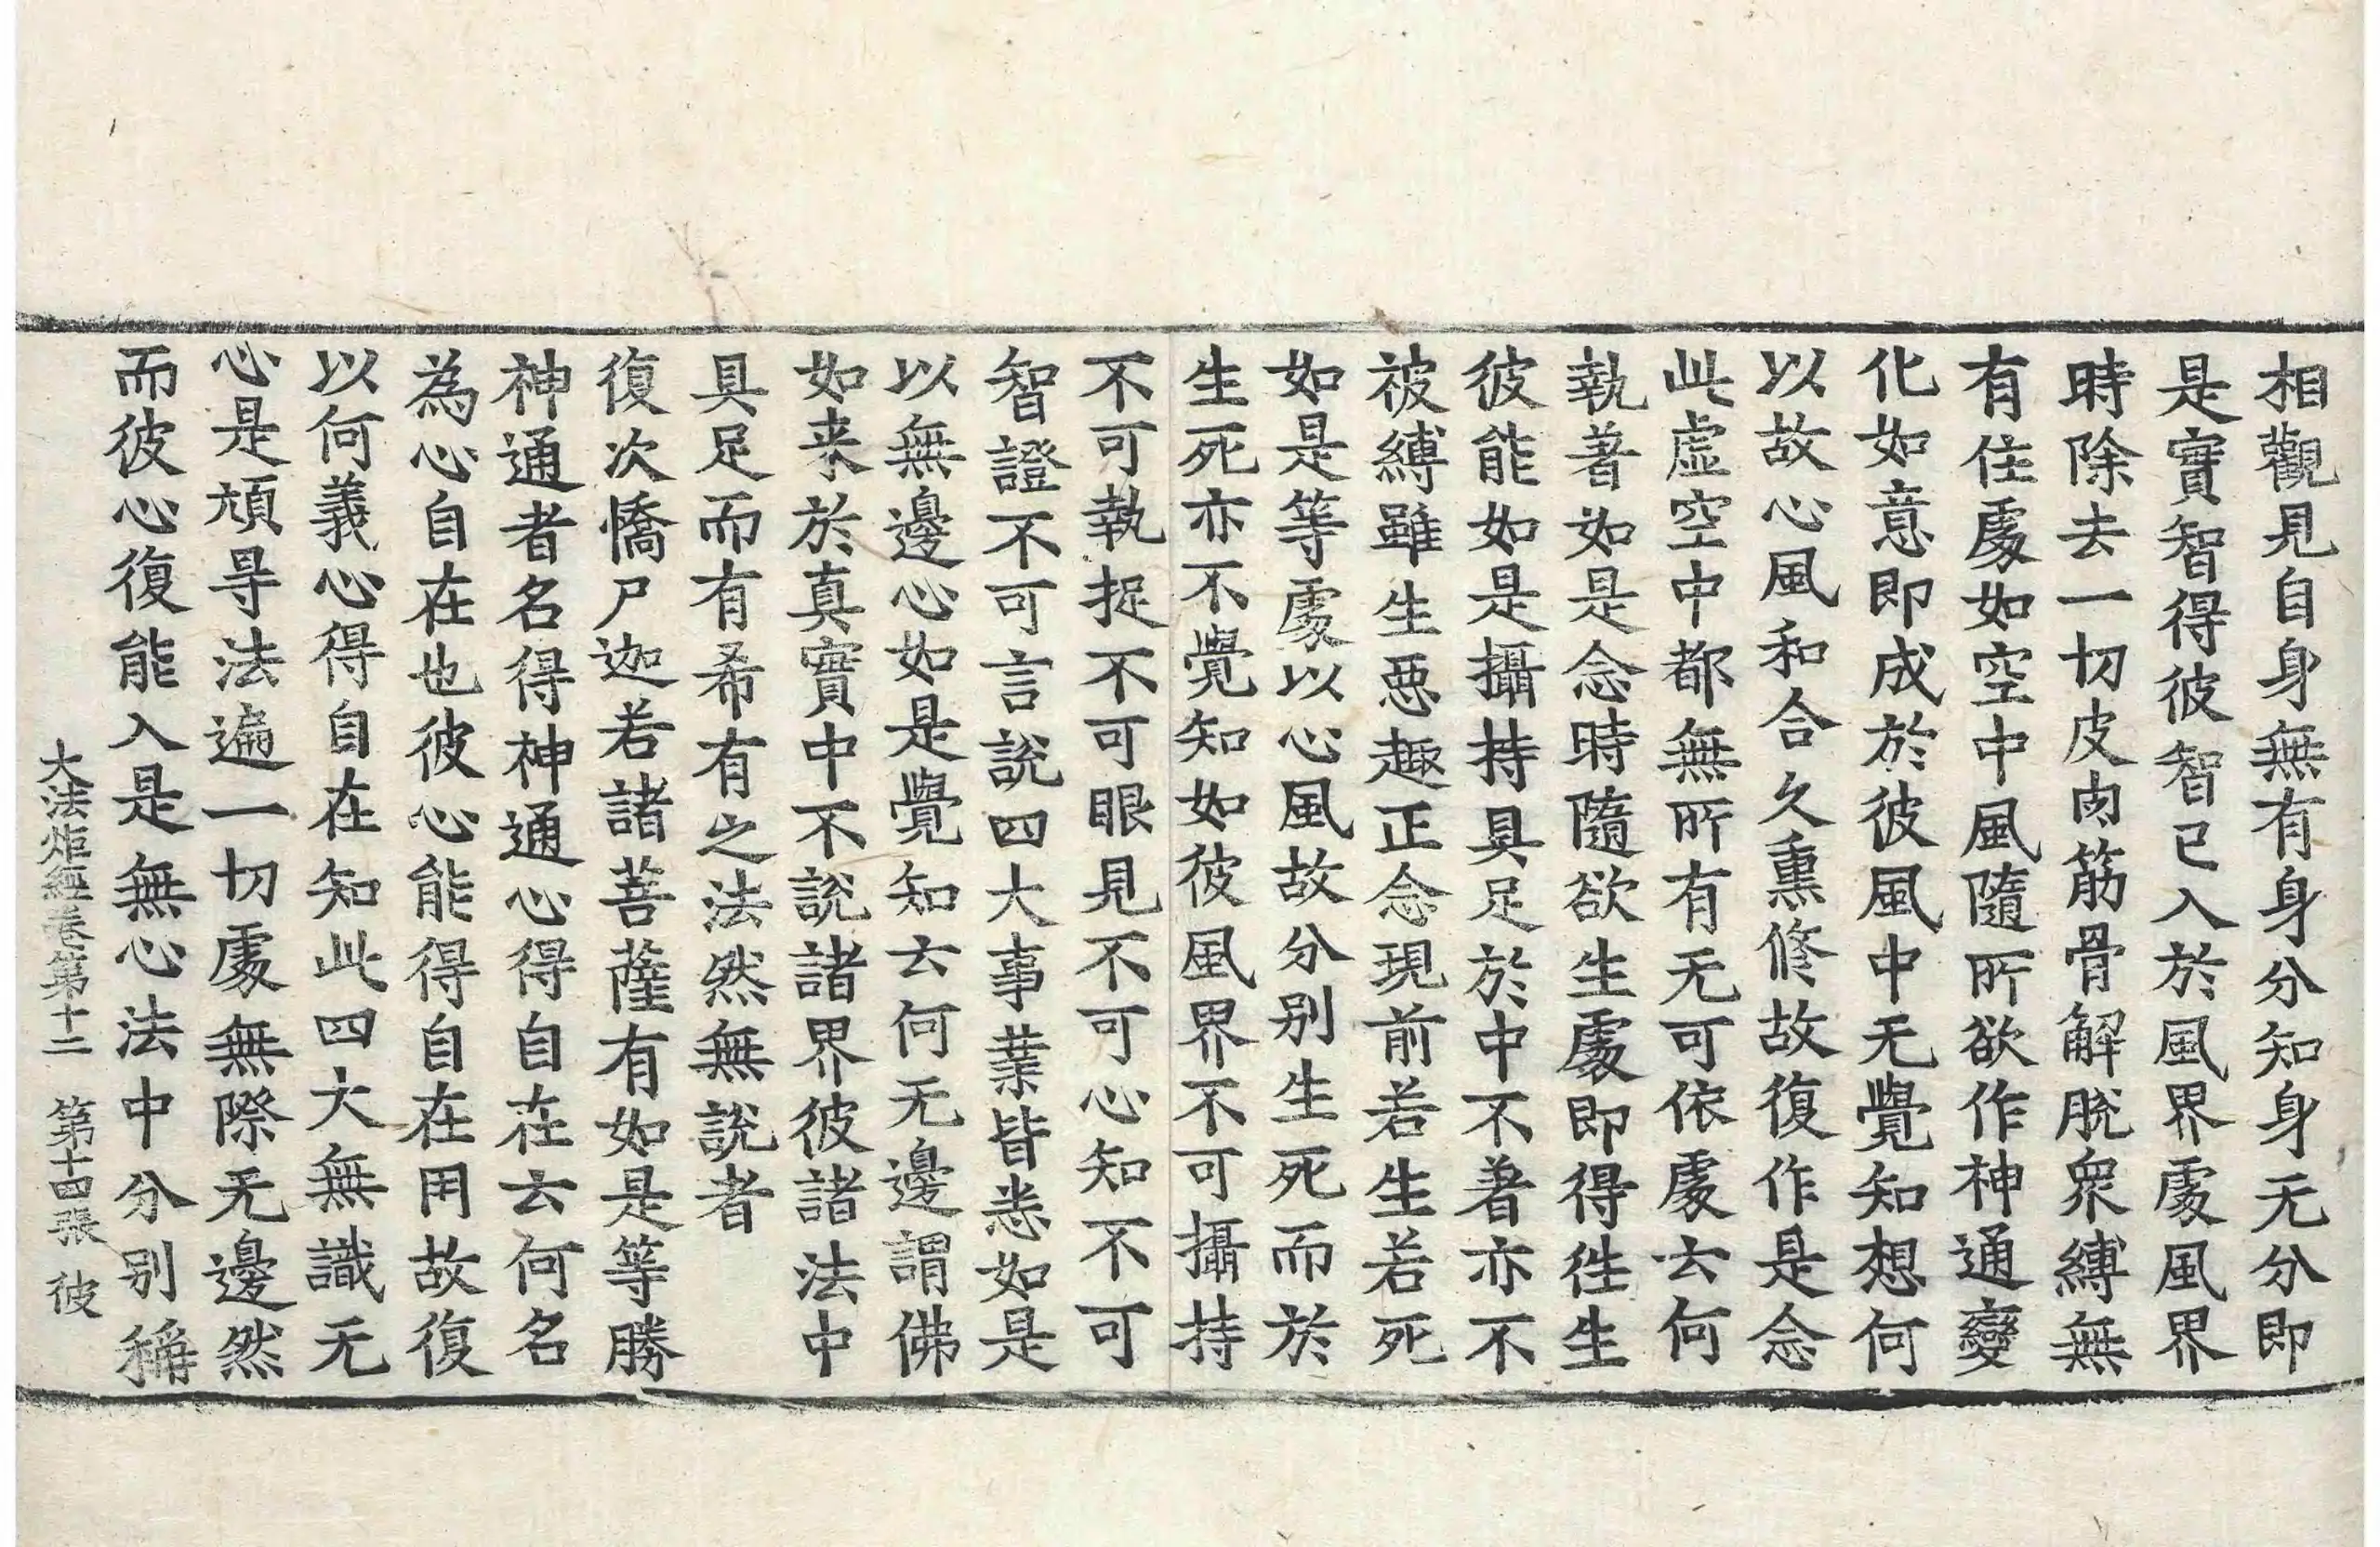 相觀見自身無有身分知身无分即
是實智得彼智已入於風界處風界
時除去一切皮肉筋骨解脫衆縛無
有住處如空中風隨所欲作神通變
化如意即成於彼風中无覺知想何
以故心風和合久熏修故復作是念
此虛空中都無所有无可依處云何
執著如是念時隨欲生處即得徃生
彼能如是攝持具足於中不著亦不
被縛雖生惡趣正念現前若生若死
如是等處以心風故分别生死而於
生死亦不覺知如彼風界不可攝持
不可執捉不可眼見不可心知不可
智證不可言說四大事業皆悉如是
以無邊心如是覺知云何无邊謂佛
如来於真實中不說諸界彼諸法中
具足而有希有之法然無說者
復次憍尸迦若諸菩薩有如是等勝
神通者名得神通心得自在云何名
為心自在也彼心能得自在用故復
以何義心得自在知此四大無識无
心是頑㝵法遍一切處無際无邊然
而彼心復能入是無心法中分别稱
大法炬經卷第十二 第十四張 彼